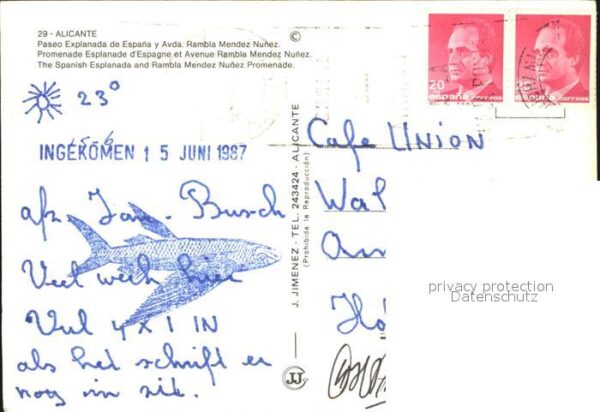 29 - ALICANTE
Paseo Explanada de España y Avda. Rambla Mendez Nuñez.
Promenade Esplanade d'Espagne et Avenue Rambla Mendez Nuñez.
The Spanish Esplanada and Rambla Mendez Nuñez Promenade.
©
23°
INGEKOMEN 15 JUNI 1987
afz. Jan. Busch
Veel werk hier
Vul 4x1 IN
als het schrift er
nog in zit.
J. JIMENEZ - TEL. 243424 - ALICANTE
(Prohibida la Reproducción)
JJ
20
españa correos
españa correos
Cafe UNION
Wal
Am
Hö
privacy protection
Datenschutz